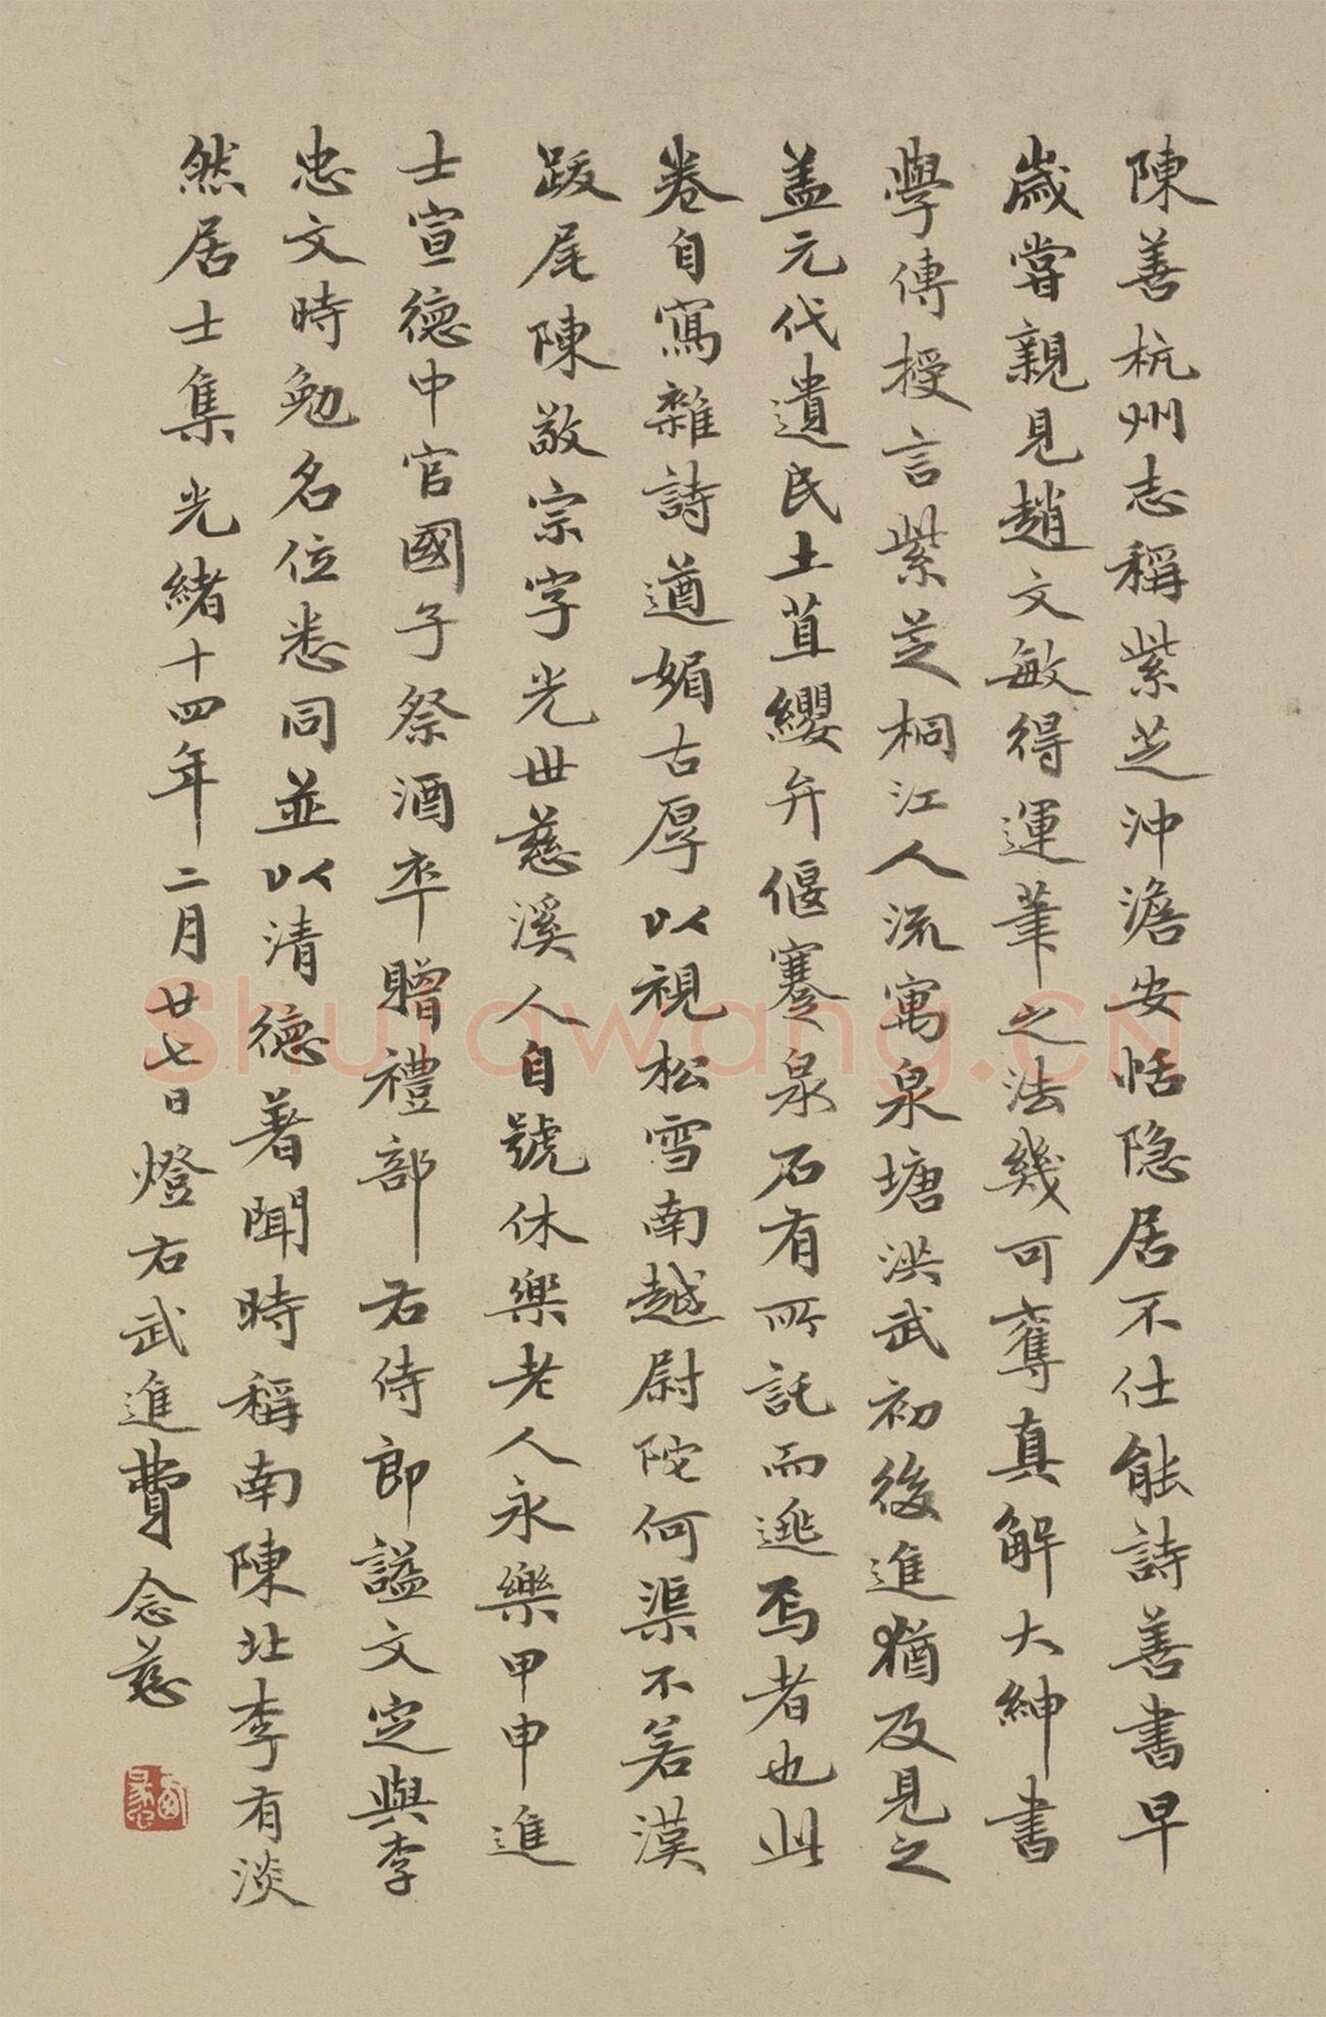 陳善杭州志稱紫芝沖澹安恬隐居不仕能詩善書早
歲嘗親見趙文敏得運筆之法幾可奪真解大紳書
學傳授言紫芝桐江人流寓泉塘洪武初後進猶及見之
盖元代遺民土苴纓弁偃蹇泉石有所託而逃焉者也此
卷自寫雜詩遒媚古厚以視松雪南越尉陀何渠不若漢
跋尾陳敬宗字光世慈溪人自號休樂老人永樂甲申進
士宣德中官國子祭酒卒贈禮部右侍郎謚文定與李
忠文時勉名位悉同並以清德著聞時稱南陳北李有淡
然居士集光緒十四年二月廿七日燈右武進費念慈
Shufawang.CN